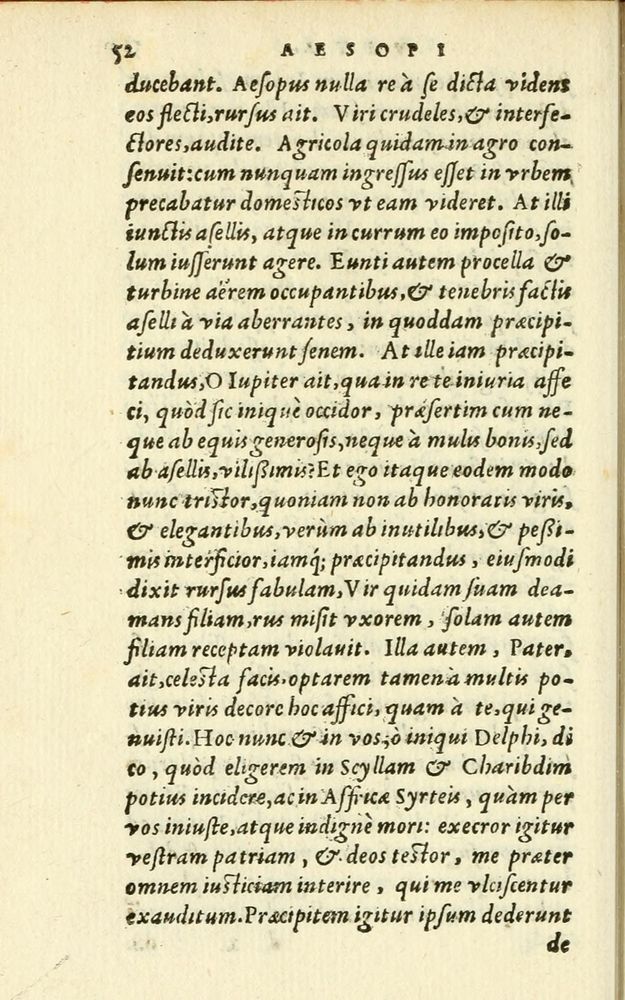 52 AESOPI
ducebant. Aeſopus nulla re à ſe dicta videns
eos flecti, rurſus ait. Viri crudeles, & interfe-
ctores, audite. Agricola quidam in agro con-
ſenuit: cum nunquam ingreſſus eſſet in vrbem,
precabatur domeſticos vt eam videret. At illi
iunctis aſellis, atque in currum eo impoſito, ſo-
lum iuſſerunt agere. Eunti autem procella &
turbine aërem occupantibus, & tenebris factis
aſelli à via aberrantes, in quoddam præcipi-
tium deduxerunt ſenem. At ille iam præcipi-
tandus, O Iupiter ait, qua in re te iniuria affe
ci, quòd ſic iniquè occidor, præſertim cum ne-
que ab equis generoſis, neque à mulis bonis, ſed
ab aſellis, vilißimis? Et ego itaque eodem modo
nunc triſtor, quoniam non ab honoratis viris,
& elegantibus, verùm ab inutilibus, & peßi-
mis interficior, iamq́; præcipitandus, eiuſmodi
dixit rurſus fabulam, Vir quidam ſuam dea-
mans filiam, rus miſit vxorem, ſolam autem
filiam receptam violauit. Illa autem, Pater,
ait, celeſta facis, optarem tamen à multis po-
tius viris decorc hoc affici, quam à te, qui ge-
nuiſti. Hoc nunc & in vos, ò iniqui Delphi, di
co, quòd eligerem in Scyllam & Charibdim
potius incidere, ac in Affricæ Syrteis, quàm per
vos iniuſte, atque indignè mori: execror igitur
veſtram patriam, & deos teſtor, me præter
omnem iuſticiam interire, qui me vlciſcentur
exauditum. Præcipitem igitur ipſum dederunt
de